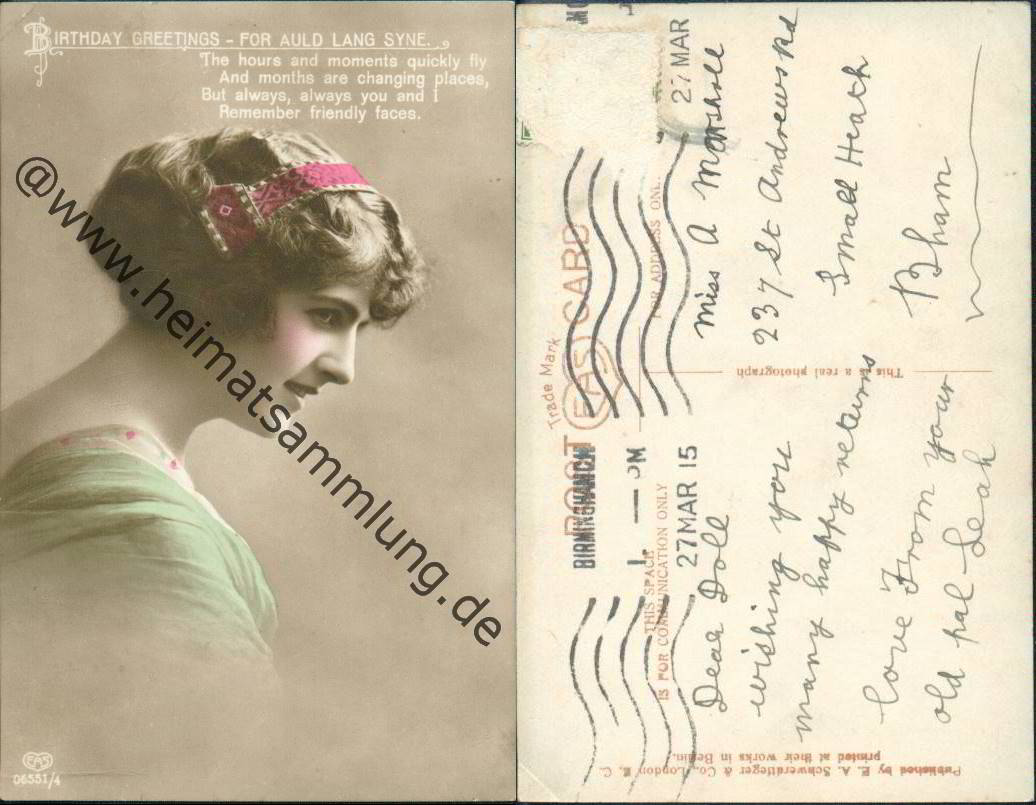 BIRTHDAY GREETINGS - FOR AULD LANG SYNE.
The hours and moments quickly fly
And months are changing places,
But always, always you and I
Remember friendly faces.
@www.heimatsammlung.de
EAS
06551/4
POST EAS CARD
Trade Mark
THIS SPACE
IS FOR COMMUNICATION ONLY
FOR ADDRESS ONLY
BIRMINGHAM
1 — PM
27 MAR 15
27 MAR
Dear Doll
wishing you
many happy returns
love From your
old pal Leah
Miss A Marshall
237 St Andrews Rd
Small Heath
Bham
This is a real photograph
Published by E. A. Schwerdtfeger & Co., London E. C.
printed at their works in Berlin.